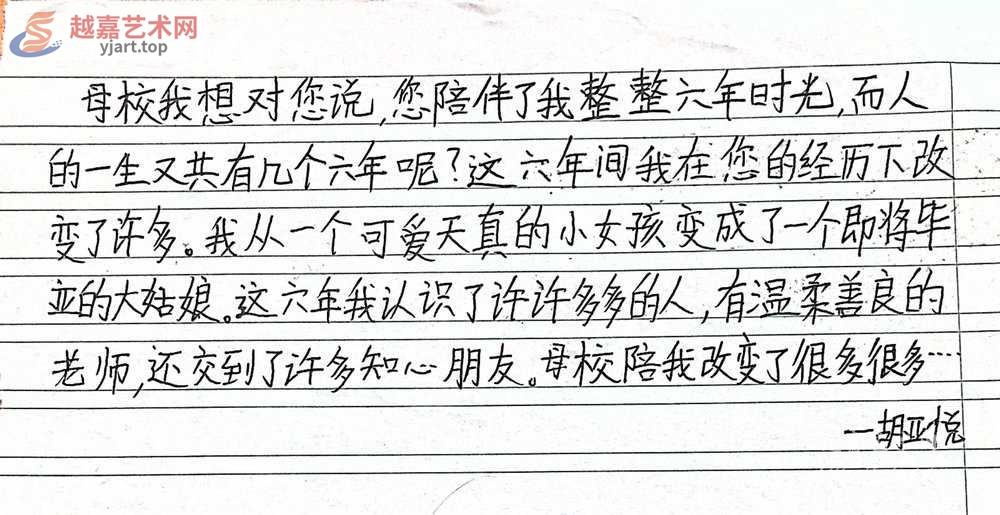 越嘉艺术网
yjart.top
母校我想对您说,您陪伴了我整整六年时光,而人
的一生又共有几个六年呢?这六年间我在您的经历下改
变了许多。我从一个可爱天真的小女孩变成了一个即将毕
亚的大姑娘。这六年我认识了许许多多的人,有温柔善良的
老师,还交到了许多知心朋友。母校陪我改变了很多很多……
—胡亚悦